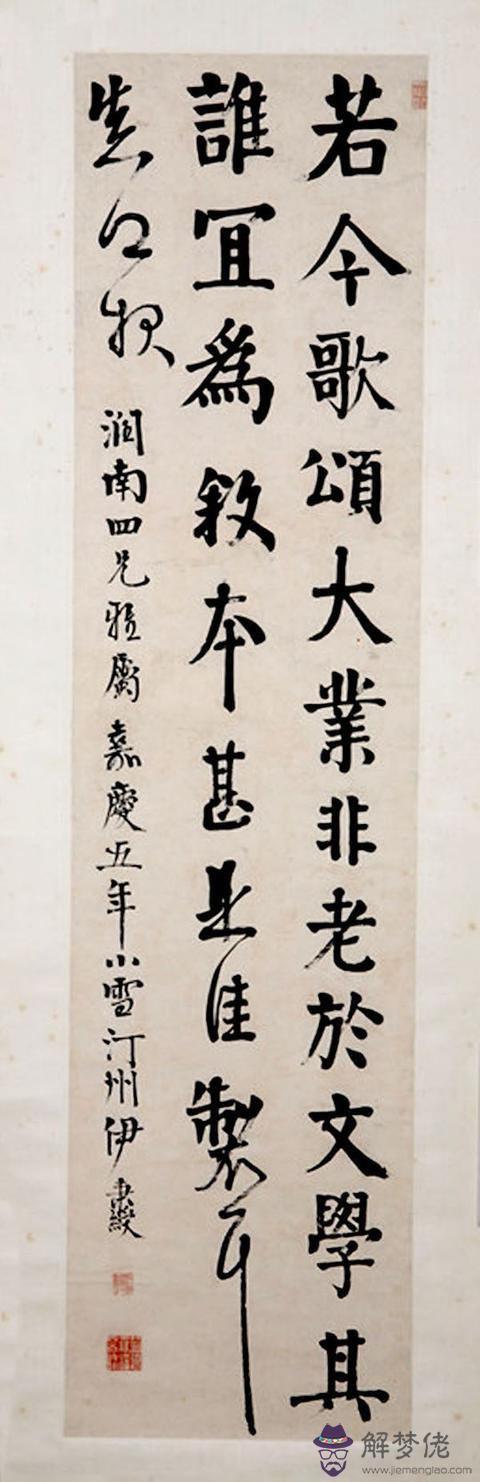 若今歌頌大業非老於文學其
誰冝爲敘本甚是佳製
潤南四兄雅屬嘉慶五年小雪汀州伊秉綬
解梦佬
www.jiemenglao.com